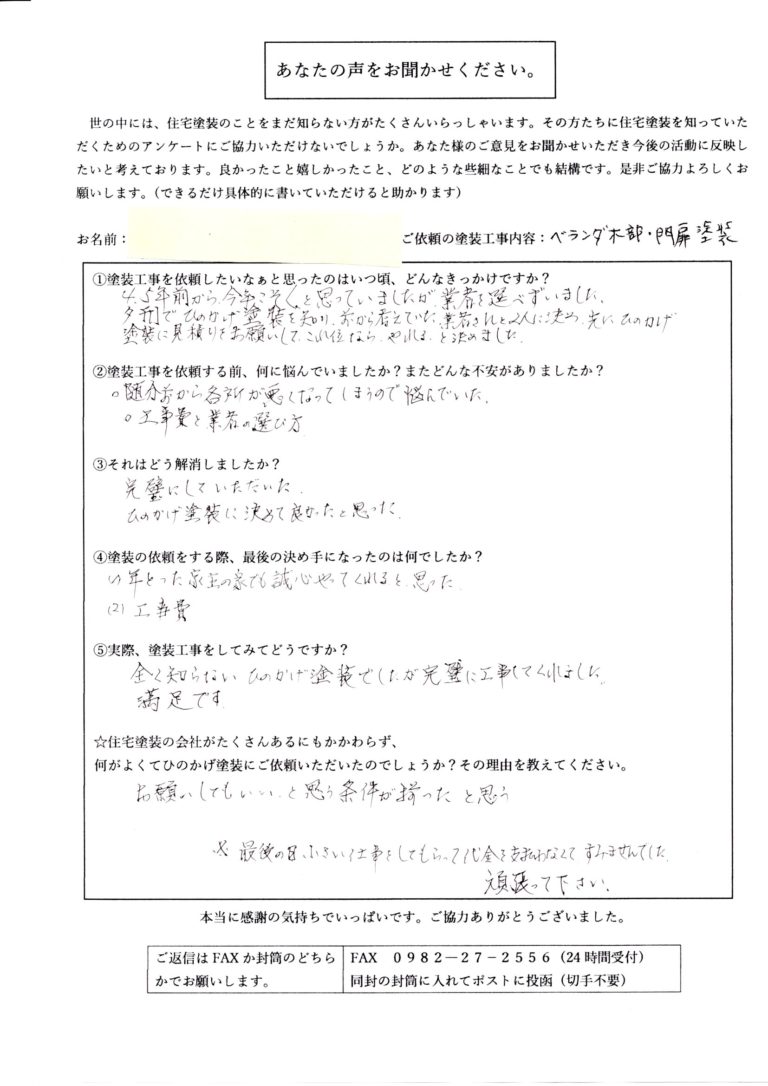 あなたの声をお聞かせください。
世の中には、住宅塗装のことをまだ知らない方がたくさんいらっしゃいます。その方たちに住宅塗装を知っていた
だくためのアンケートにご協力いただけないでしょうか。あなた様のご意見をお聞かせいただき今後の活動に反映し
たいと考えております。良かったこと嬉しかったこと、どのような些細なことでも結構です。是非ご協力よろしくお
願いします。(できるだけ具体的に書いていただけると助かります)
お名前： ご依頼の塗装工事内容：ベランダ木部・門扉塗装
①塗装工事を依頼したいなぁと思ったのはいつ頃、どんなきっかけですか？
4.5年前から今年こそと思っていましたが業者を選べずいました。
夕刊でひのかげ塗装を知り、前から考えていた業者さんと2人に決め、先にひのかげ
塗装に見積りをお願いして、これ位ならやれると決めました。
②塗装工事を依頼する前、何に悩んでいましたか？またどんな不安がありましたか？
○随分前から各所が悪くなってしまうので悩んでいた。
○工事費と業者の選び方
③それはどう解消しましたか？
完璧にしていただいた。
ひのかげ塗装に決めて良かったと思った。
④塗装の依頼をする際、最後の決め手になったのは何でしたか？
(1)年とった家主の家でも誠心やってくれると思った。
(2)工事費
⑤実際、塗装工事をしてみてどうですか？
全く知らないひのかげ塗装でしたが完璧に工事してくれました。
満足です。
☆住宅塗装の会社がたくさんあるにもかかわらず、
何がよくてひのかげ塗装にご依頼いただいたのでしょうか？その理由を教えてください。
お願いしてもいい、と思う条件が揃ったと思う
※最後の日小さい仕事をしてもらって代金を支払わなくてすみませんでした。
頑張って下さい。
本当に感謝の気持ちでいっぱいです。ご協力ありがとうございました。
ご返信はFAXか封筒のどちら FAX 0982－27－2556（24時間受付）
かでお願いします。 同封の封筒に入れてポストに投函（切手不要）